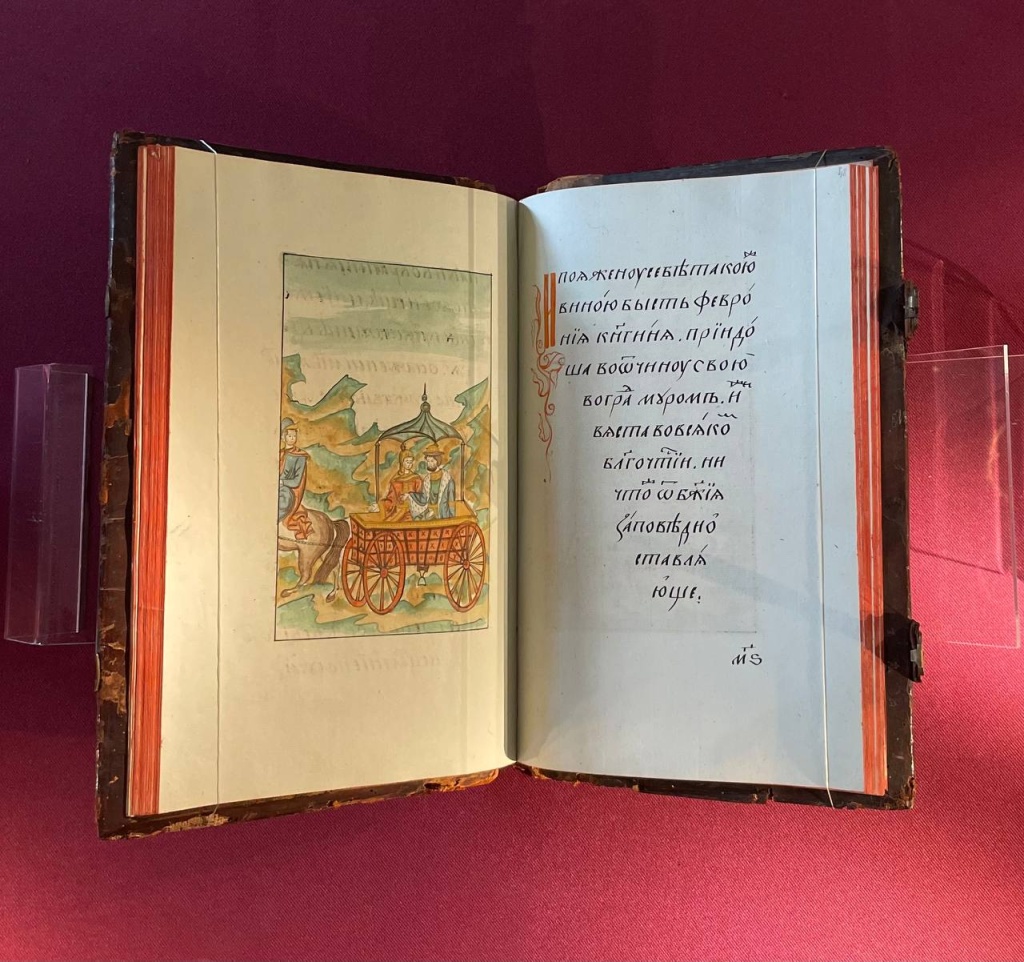 И поѧ женоу себѣ такою
виною бысть февро
нїѧ кн҃гинѧ. прїидо
ша во ѿчиноу свою
во гра муромъ. и
вѧста во всѧко
бл҃гочтїи. ни
что ѿ бж҃їѧ
заповѣдно
ставлѧ
юще: